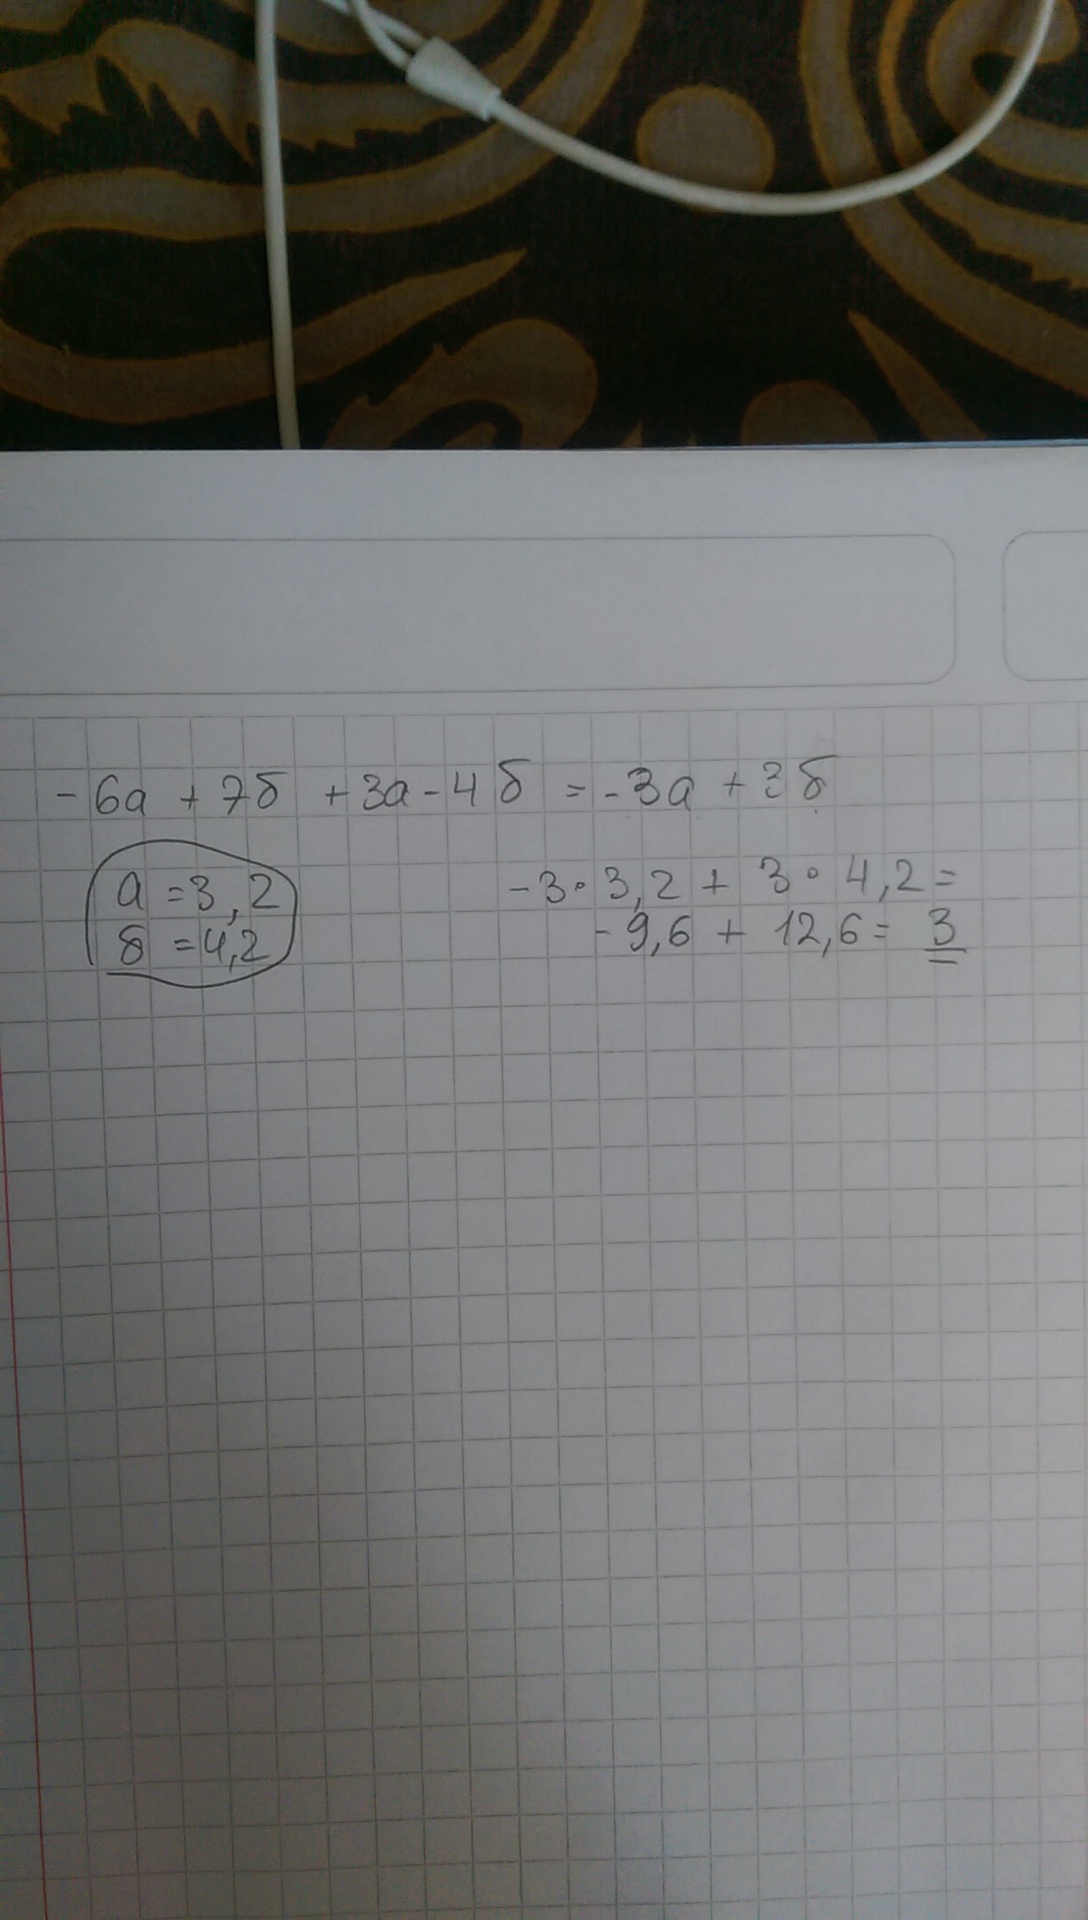 -6а + 7б + 3а - 4б = -3а + 3б
а = 3,2
б = 4,2
-3 · 3,2 + 3 · 4,2 =
-9,6 + 12,6 = 3